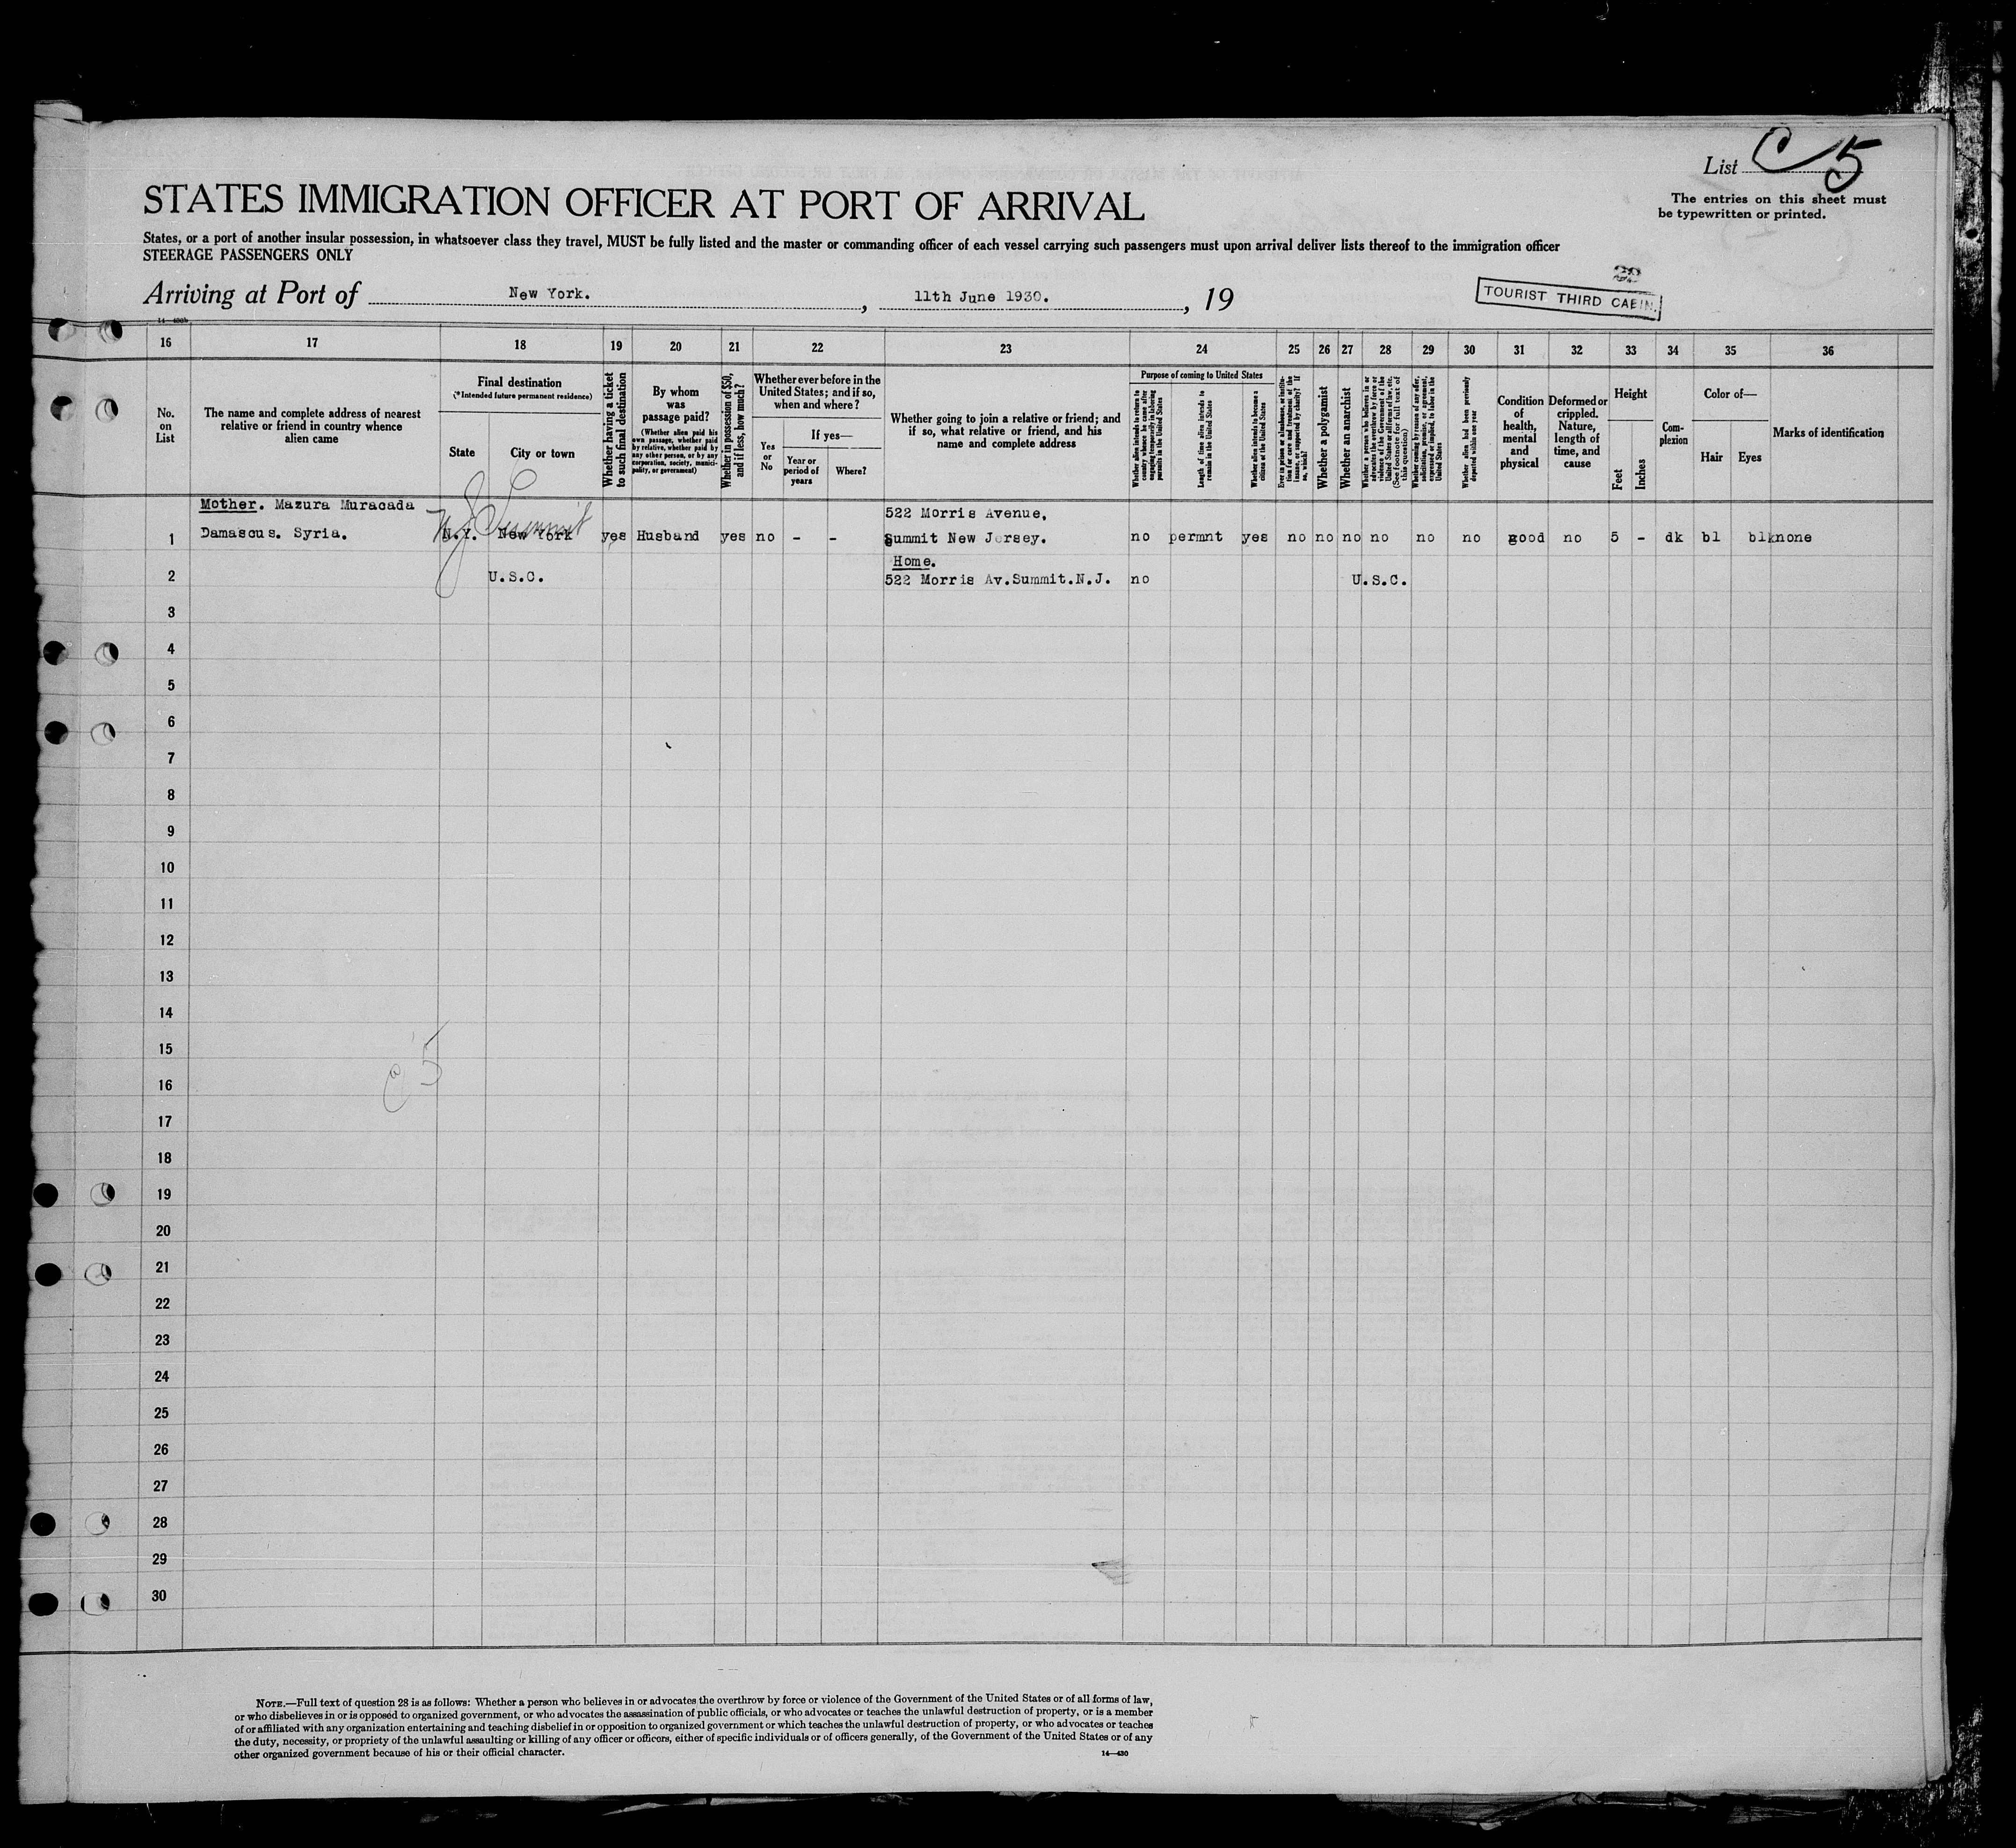 List C 5
The entries on this sheet must
be typewritten or printed.
STATES IMMIGRATION OFFICER AT PORT OF ARRIVAL
States, or a port of another insular possession, in whatsoever class they travel, MUST be fully listed and the master or commanding officer of each vessel carrying such passengers must upon arrival deliver lists thereof to the immigration officer
STEERAGE PASSENGERS ONLY
Arriving at Port of New York. , 11th June 1930. , 19
TOURIST THIRD CABIN.
16 17 18 19 20 21 22 23 24 25 26 27 28 29 30 31 32 33 34 35 36
No.
on
List
The name and complete address of nearest
relative or friend in country whence
alien came
Final destination
(*Intended future permanent residence)
State
City or town
Whether having a ticket
to such final destination
By whom
was
passage paid?
(Whether alien paid his
own passage, whether paid
by relative, whether paid by
any other person, or by any
corporation, society, munici-
pality, or government)
Whether in possession of $50,
and if less, how much?
Whether ever before in the
United States; and if so,
when and where?
Yes
or
No
If yes—
Year or
period of
years
Where?
Whether going to join a relative or friend; and
if so, what relative or friend, and his
name and complete address
Purpose of coming to United States
Whether alien intends to return to
country whence he came after
engaging temporarily in laboring
pursuits in the United States
Length of time alien intends to
remain in the United States
Whether alien intends to become a
citizen of the United States
Ever in prison or almshouse, or institu-
tion for care and treatment of the
insane, or supported by charity? If
so, which?
Whether a polygamist
Whether an anarchist
Whether a person who believes in or
advocates the overthrow by force or
violence of the Government of the
United States or all forms of law, etc.
(See footnote for full text of
this question)
Whether coming by reason of any offer,
solicitation, promise, or agreement,
expressed or implied, to labor in the
United States
Whether alien had been previously
deported within one year
Condition
of
health,
mental
and
physical
Deformed or
crippled.
Nature,
length of
time, and
cause
Height
Feet
Inches
Com-
plexion
Color of—
Hair
Eyes
Marks of identification
Mother. Mazura Muracada
522 Morris Avenue,
N J Summit
1 Damascus. Syria. N.Y. New York yes Husband yes no - - Summit New Jersey. no permnt yes no no no no no no good no 5 - dk bl blk none
Home.
2 U.S.C. 522 Morris Av.Summit.N.J. no U.S.C.
3
4
5
6
7
8
9
10
11
12
13
14
15
C 5
16
17
18
19
20
21
22
23
24
25
26
27
28
29
30
NOTE.—Full text of question 28 is as follows: Whether a person who believes in or advocates the overthrow by force or violence of the Government of the United States or of all forms of law,
or who disbelieves in or is opposed to organized government, or who advocates the assassination of public officials, or who advocates or teaches the unlawful destruction of property, or is a member
of or affiliated with any organization entertaining and teaching disbelief in or opposition to organized government or which teaches the unlawful destruction of property, or who advocates or teaches
the duty, necessity, or propriety of the unlawful assaulting or killing of any officer or officers, either of specific individuals or of officers generally, of the Government of the United States or of any
other organized government because of his or their official character.
14—430